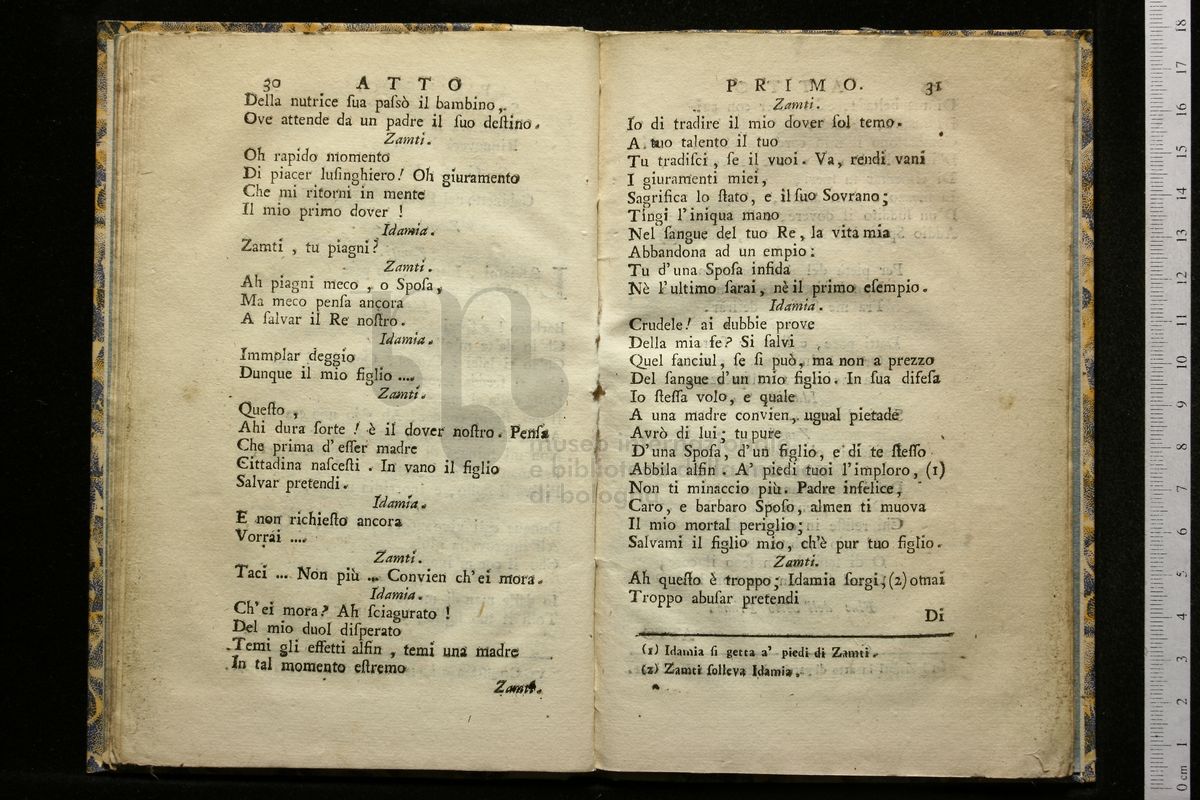 30 ATTO
Della nutrice ſua paſsò il bambino,
Ove attende da un padre il ſuo deſtino.
Zamti.
Oh rapido momento
Di piacer luſinghiero! Oh giuramento
Che mi ritorni in mente
Il mio primo dover !
Idamia.
Zamti , tu piagni?
Zamti.
Ah piagni meco , o Spoſa,
Ma meco penſa ancora
A ſalvar il Re noſtro.
Idamia.
Immolar deggio
Dunque il mio figlio ....
Zamti.
Queſto ,
Ahi dura ſorte ! è il dover noſtro. Penſa
Che prima d'eſſer madre
Cittadina naſceſti . In vano il figlio
Salvar pretendi.
Idamia.
E non richieſto ancora
Vorrai ....
Zamti.
Taci ... Non più ... Convien ch'ei mora.
Idamia.
Ch'ei mora? Ah ſciagurato !
Del mio duol diſperato
Temi gli effetti alfin , temi una madre
In tal momento eſtremo
Zamti.
PRIMO. 31
Zamti.
Io di tradire il mio dover ſol temo.
A tuo talento il tuo
Tu tradiſci, ſe il vuoi. Va, rendi vani
I giuramenti miei,
Sagrifica lo ſtato, e il ſuo Sovrano;
Tingi l'iniqua mano
Nel ſangue del tuo Re, la vita mia
Abbandona ad un empio:
Tu d'una Spoſa infida
Nè l'ultimo ſarai, nè il primo eſempio.
Idamia.
Crudele! ai dubbie prove
Della mia fe? Si ſalvi
Quel fanciul, ſe ſi può, ma non a prezzo
Del ſangue d'un mio figlio. In ſua difeſa
Io ſteſſa volo, e quale
A una madre convien, ugual pietade
Avrò di lui; tu pure
D'una Spoſa, d'un figlio, e di te ſteſſo
Abbila alfin. A' piedi tuoi l'imploro, (1)
Non ti minaccio più. Padre infelice,
Caro, e barbaro Spoſo, almen ti muova
Il mio mortal periglio;
Salvami il figlio mio, ch'è pur tuo figlio.
Zamti.
Ah queſto è troppo; Idamia ſorgi; (2) omai
Troppo abuſar pretendi
Di
(1) Idamia ſi getta a' piedi di Zamti.
(2) Zamti ſolleva Idamia.
museo
e bibliote
di bologna
0 cm 1 2 3 4 5 6 7 8 9 10 11 12 13 14 15 16 17 18